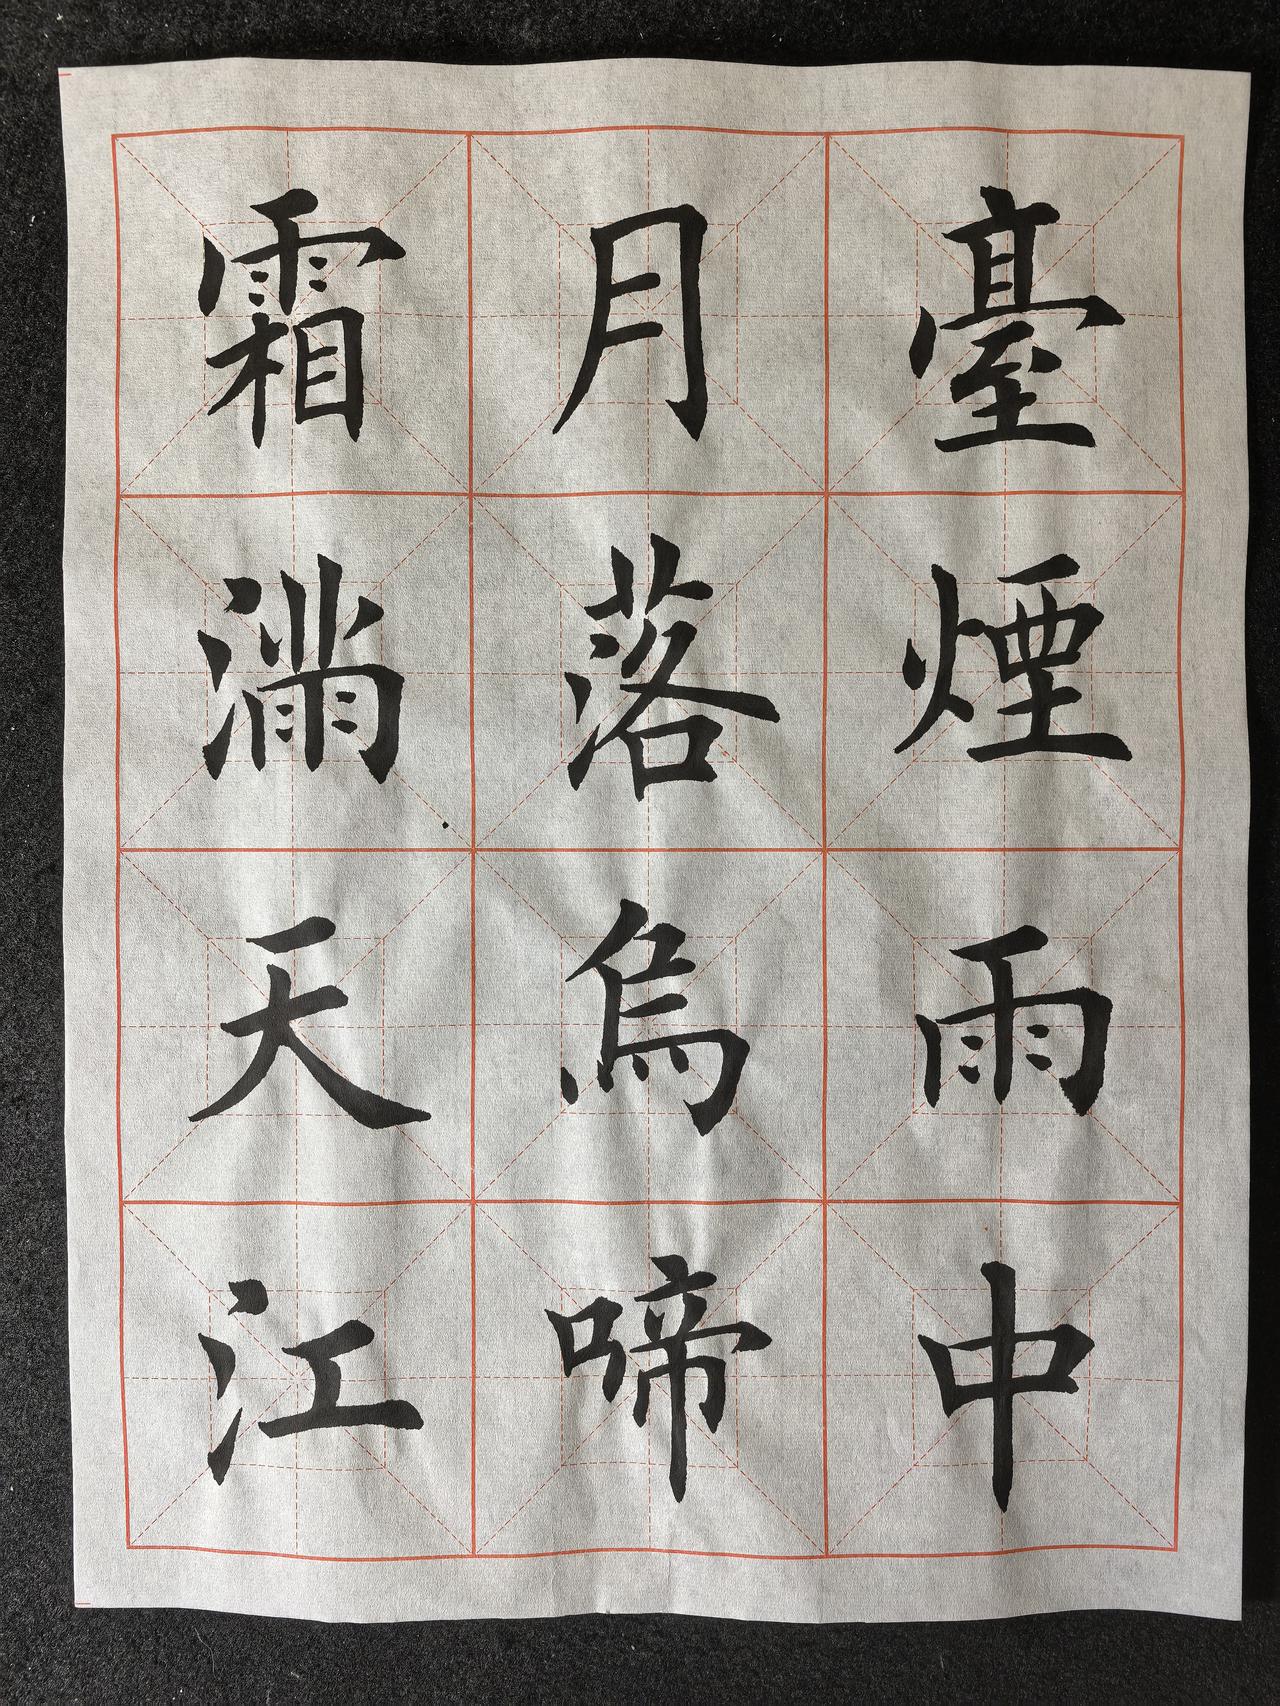 臺煙雨中
月落烏啼
霜滿天江